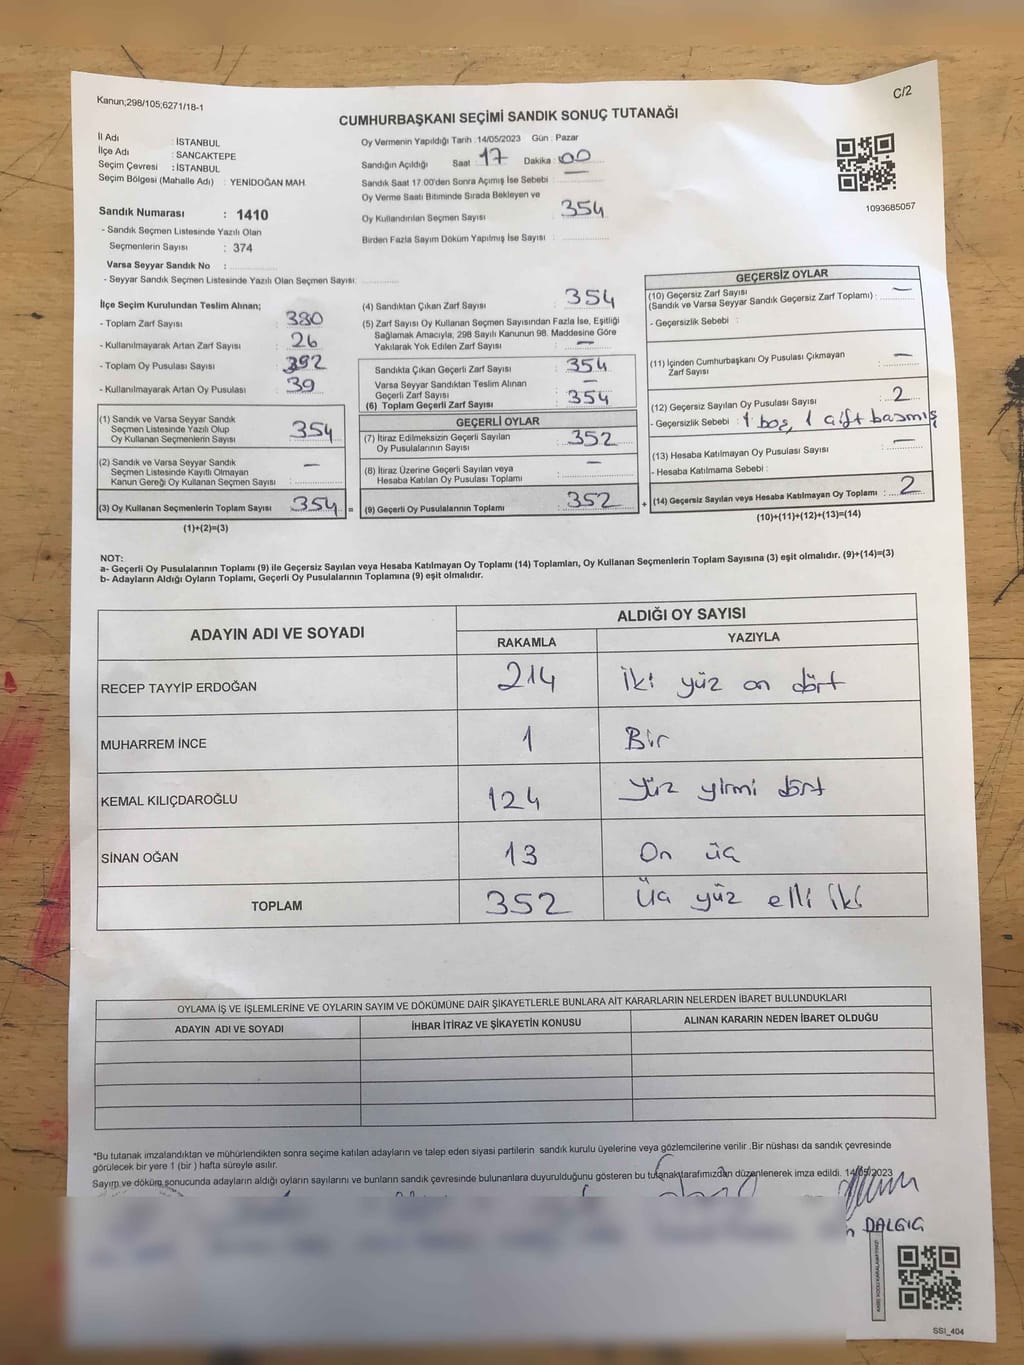 C/2
Kanun;298/105;6271/18-1
CUMHURBAŞKANI SEÇİMİ SANDIK SONUÇ TUTANAĞI
İl Adı : İSTANBUL
İlçe Adı : SANCAKTEPE
Seçim Çevresi : İSTANBUL
Seçim Bölgesi (Mahalle Adı) : YENİDOĞAN MAH.
Sandık Numarası : 1410
- Sandık Seçmen Listesinde Yazılı Olan
Seçmenlerin Sayısı : 374
Varsa Seyyar Sandık No :
- Seyyar Sandık Seçmen Listesinde Yazılı Olan Seçmen Sayısı:
Oy Vermenin Yapıldığı Tarih :14/05/2023 Gün : Pazar
Sandığın Açıldığı Saat : 17 Dakika : 00
Sandık Saat 17.00'den Sonra Açımış İse Sebebi : —
Oy Verme Saati Bitiminde Sırada Bekleyen ve
Oy Kullandırılan Seçmen Sayısı : 354
Birden Fazla Sayım Döküm Yapılmış İse Sayısı :
1093685057
İlçe Seçim Kurulundan Teslim Alınan;
- Toplam Zarf Sayısı : 380
- Kullanılmayarak Artan Zarf Sayısı : 26
- Toplam Oy Pusulası Sayısı : 392
- Kullanılmayarak Artan Oy Pusulası : 39
(1) Sandık ve Varsa Seyyar Sandık
Seçmen Listesinde Yazılı Olup
Oy Kullanan Seçmenlerin Sayısı : 354
(2) Sandık ve Varsa Seyyar Sandık
Seçmen Listesinde Kayıtlı Olmayan
Kanun Gereği Oy Kullanan Seçmen Sayısı : —
(3) Oy Kullanan Seçmenlerin Toplam Sayısı : 354 =
(1)+(2)=(3)
(4) Sandıktan Çıkan Zarf Sayısı : 354
(5) Zarf Sayısı Oy Kullanan Seçmen Sayısından Fazla İse, Eşitliği
Sağlamak Amacıyla, 298 Sayılı Kanunun 98. Maddesine Göre
Yakılarak Yok Edilen Zarf Sayısı : —
Sandıkta Çıkan Geçerli Zarf Sayısı : 354
Varsa Seyyar Sandıktan Teslim Alınan
Geçerli Zarf Sayısı : —
(6) Toplam Geçerli Zarf Sayısı : 354
GEÇERLİ OYLAR
(7) İtiraz Edilmeksizin Geçerli Sayılan
Oy Pusulasının Sayısı : 352
(8) İtiraz Üzerine Geçerli Sayılan veya
Hesaba Katılan Oy Pusulası Toplamı : —
(9) Geçerli Oy Pusulalarının Toplamı : 352 +
GEÇERSİZ OYLAR
(10) Geçersiz Zarf Sayısı
(Sandık ve Varsa Seyyar Sandık Geçersiz Zarf Toplamı) : —
- Geçersizlik Sebebi :
(11) İçinden Cumhurbaşkanı Oy Pusulası Çıkmayan
Zarf Sayısı : —
(12) Geçersiz Sayılan Oy Pusulası Sayısı : 2
- Geçersizlik Sebebi : 1 boş, 1 çift basmış
(13) Hesaba Katılmayan Oy Pusulası Sayısı : —
- Hesaba Katılmama Sebebi :
(14) Geçersiz Sayılan veya Hesaba Katılmayan Oy Toplamı : 2
(10)+(11)+(12)+(13)=(14)
NOT:
a- Geçerli Oy Pusulalarının Toplamı (9) ile Geçersiz Sayılan veya Hesaba Katılmayan Oy Toplamı (14) Toplamları, Oy Kullanan Seçmenlerin Toplam Sayısına (3) eşit olmalıdır. (9)+(14)=(3)
b- Adayların Aldığı Oyların Toplamı, Geçerli Oy Pusulalarının Toplamına (9) eşit olmalıdır.
ADAYIN ADI VE SOYADI ALDIĞI OY SAYISI
RAKAMLA YAZIYLA
RECEP TAYYİP ERDOĞAN 214 İki yüz on dört
MUHARREM İNCE 1 Bir
KEMAL KILIÇDAROĞLU 124 Yüz yirmi dört
SİNAN OĞAN 13 On üç
TOPLAM 352 Üç yüz elli iki
OYLAMA İŞ VE İŞLEMLERİNE VE OYLARIN SAYIM VE DÖKÜMÜNE DAİR ŞİKAYETLERLE BUNLARA AİT KARARLARIN NELERDEN İBARET BULUNDUKLARI
ADAYIN ADI VE SOYADI İHBAR İTİRAZ VE ŞİKAYETİN KONUSU ALINAN KARARIN NEDEN İBARET OLDUĞU
*Bu tutanak imzalandıktan ve mühürlendikten sonra seçime katılan adayların ve talep eden siyasi partilerin sandık kurulu üyelerine veya gözlemcilerine verilir .Bir nüshası da sandık çevresinde
görülecek bir yere 1 (bir ) hafta süreyle asılır.
Sayım ve döküm sonucunda adayların aldığı oyların sayılarını ve bunların sandık çevresinde bulunanlara duyurulduğunu gösteren bu tutanak tarafımızdan düzenlenerek imza edildi. 14/05/2023
DALGIÇ
SSI_404